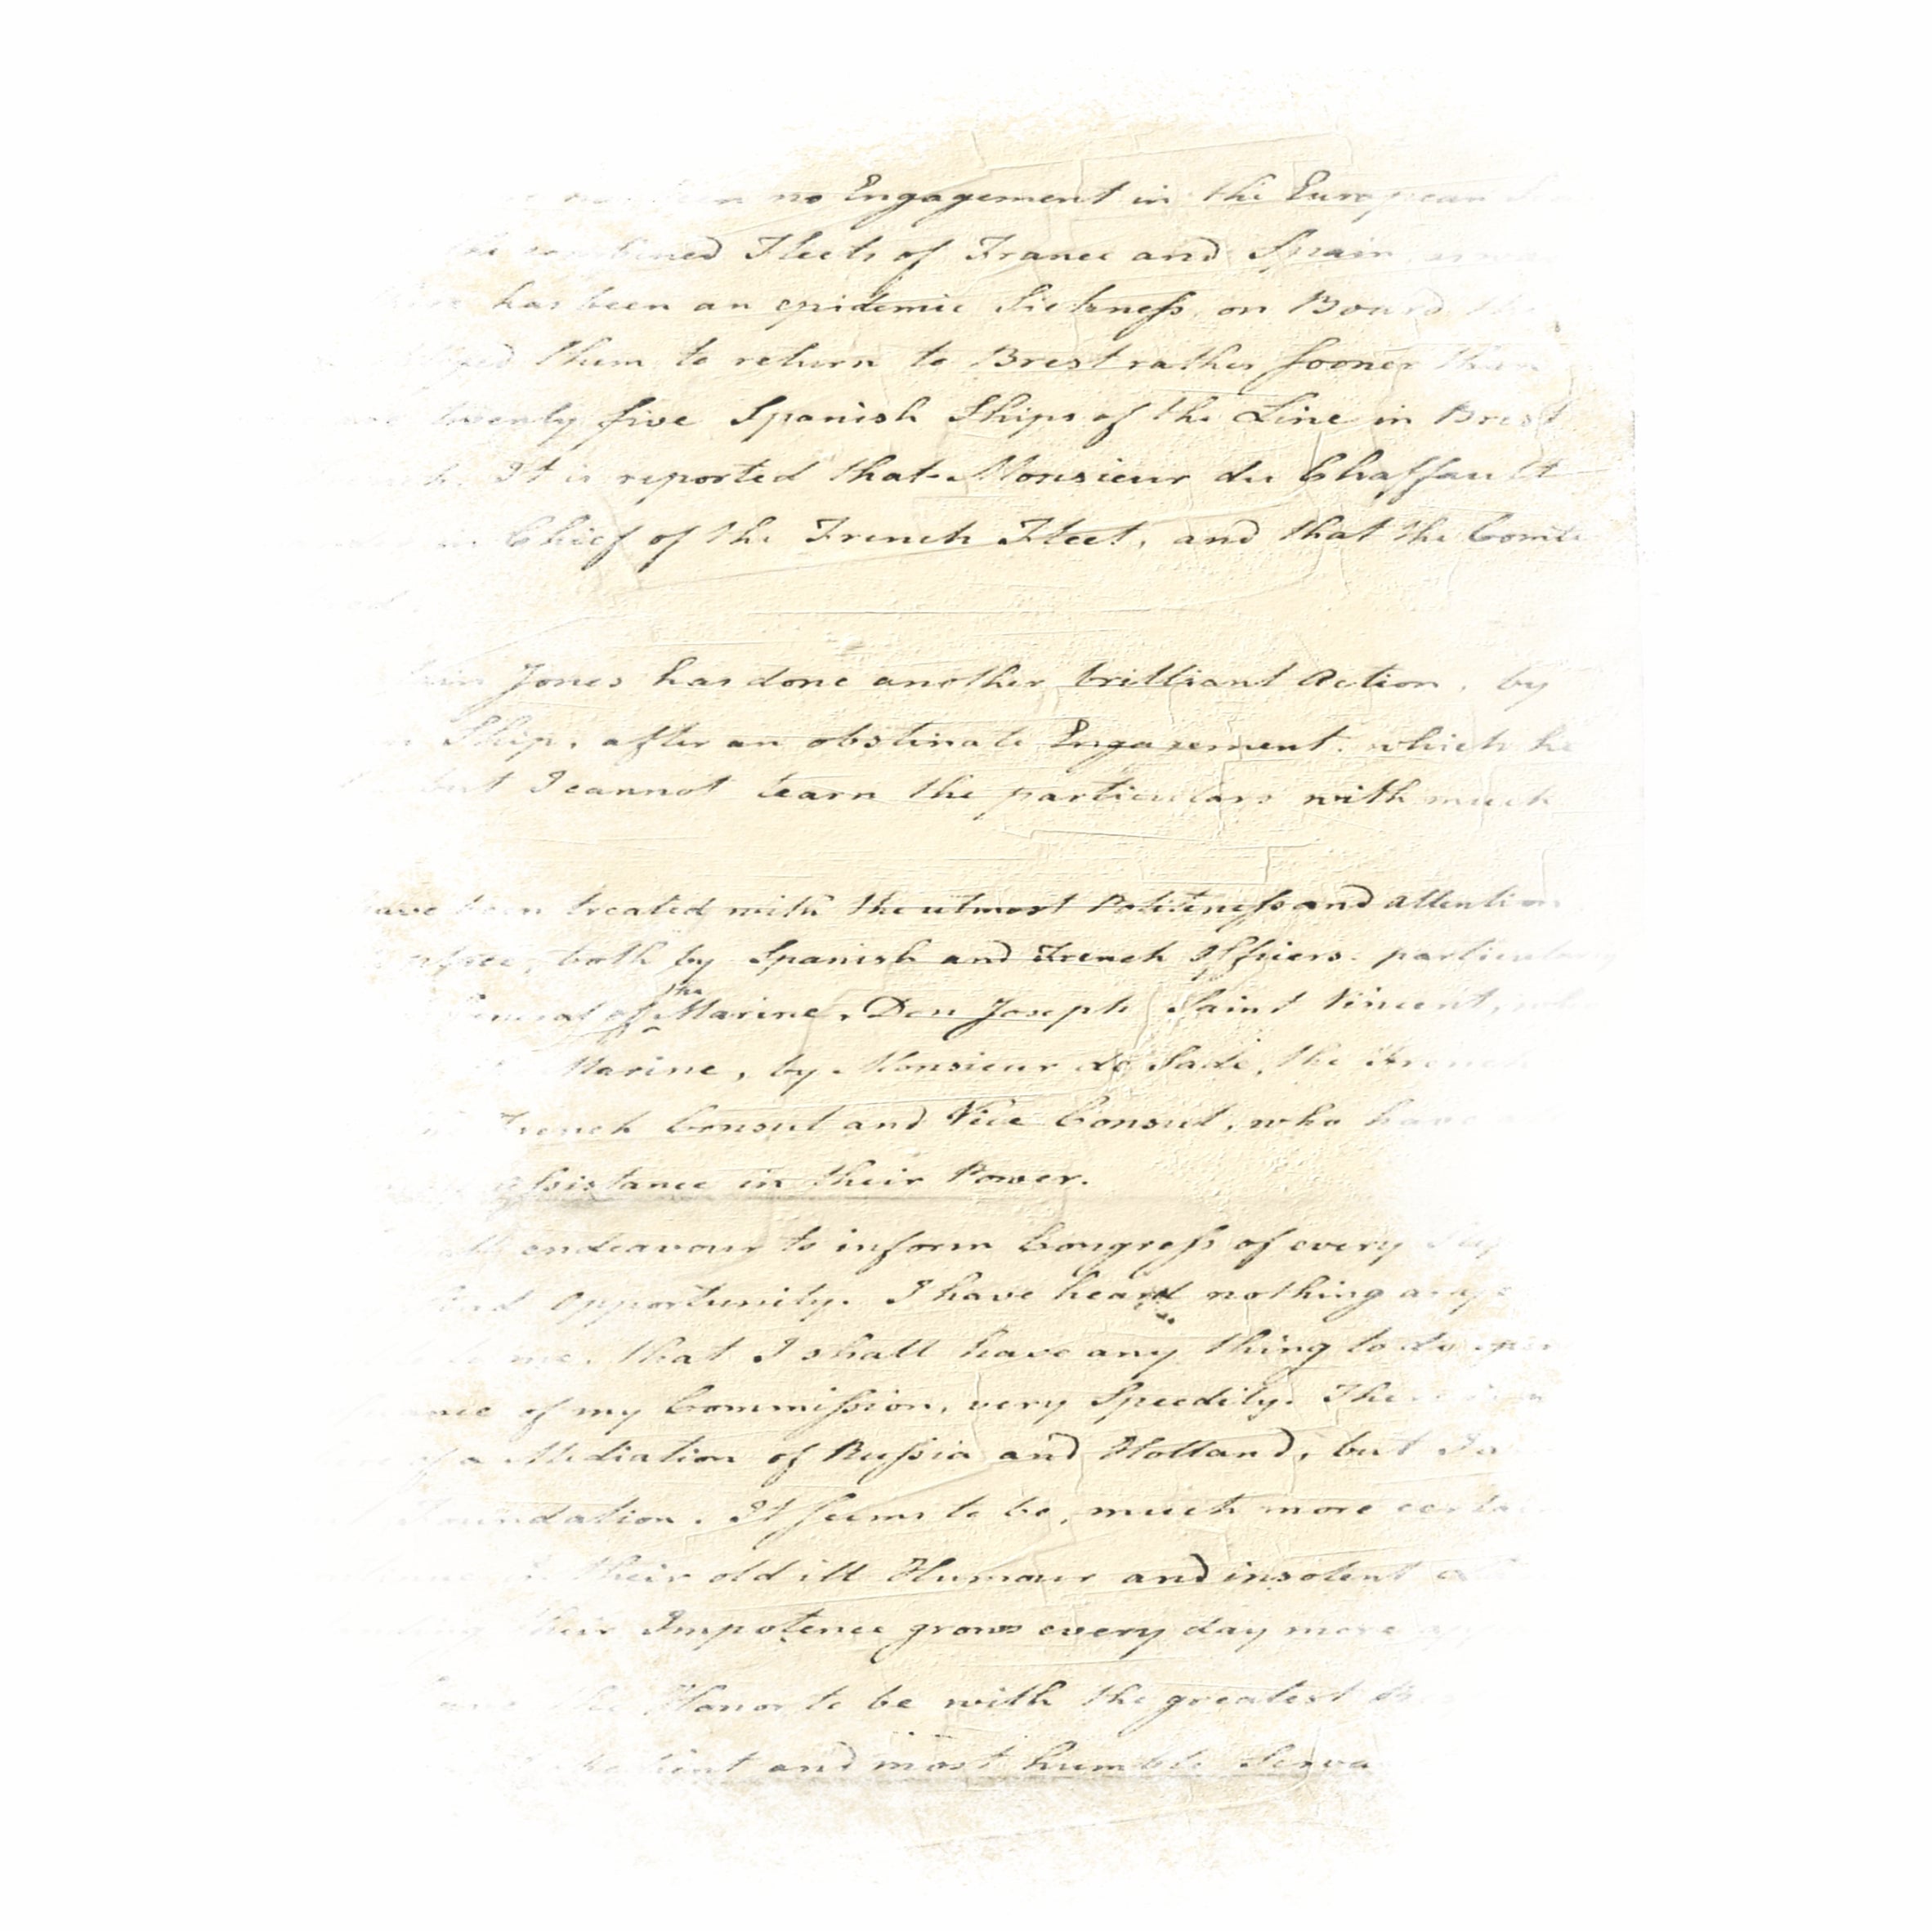 no Engagement in the European
combined Fleets of France and Spain
has been an epidemic Sickness, on Board the
them to return to Brest rather sooner than
twenty five Spanish Ships of the Line in Brest
It is reported that Monsieur du Chaffault
in Chief of the French Fleet, and that the Comte
Jones has done another brilliant Action, by
Ship, after an obstinate Engagement, which he
but I cannot learn the particulars with much
have been treated with the utmost Politeness and Attention
both by Spanish and French Officers, particularly
General of the Marine, Don Joseph Saint Vincent, who
Marine, by Monsieur de Sade, the French
French Consul and Vice Consul, who have
assistance in their Power.
endeavour to inform Congress of every
and Opportunity. I have heard nothing
to me, that I shall have any thing to do
of my Commission, very Speedily. There
of a Mediation of Russia and Holland, but
Foundation. It seems to be, much more
their old ill Humour and insolent
their Impotence grows every day more
the Honor to be with the greatest
and most humble Serva